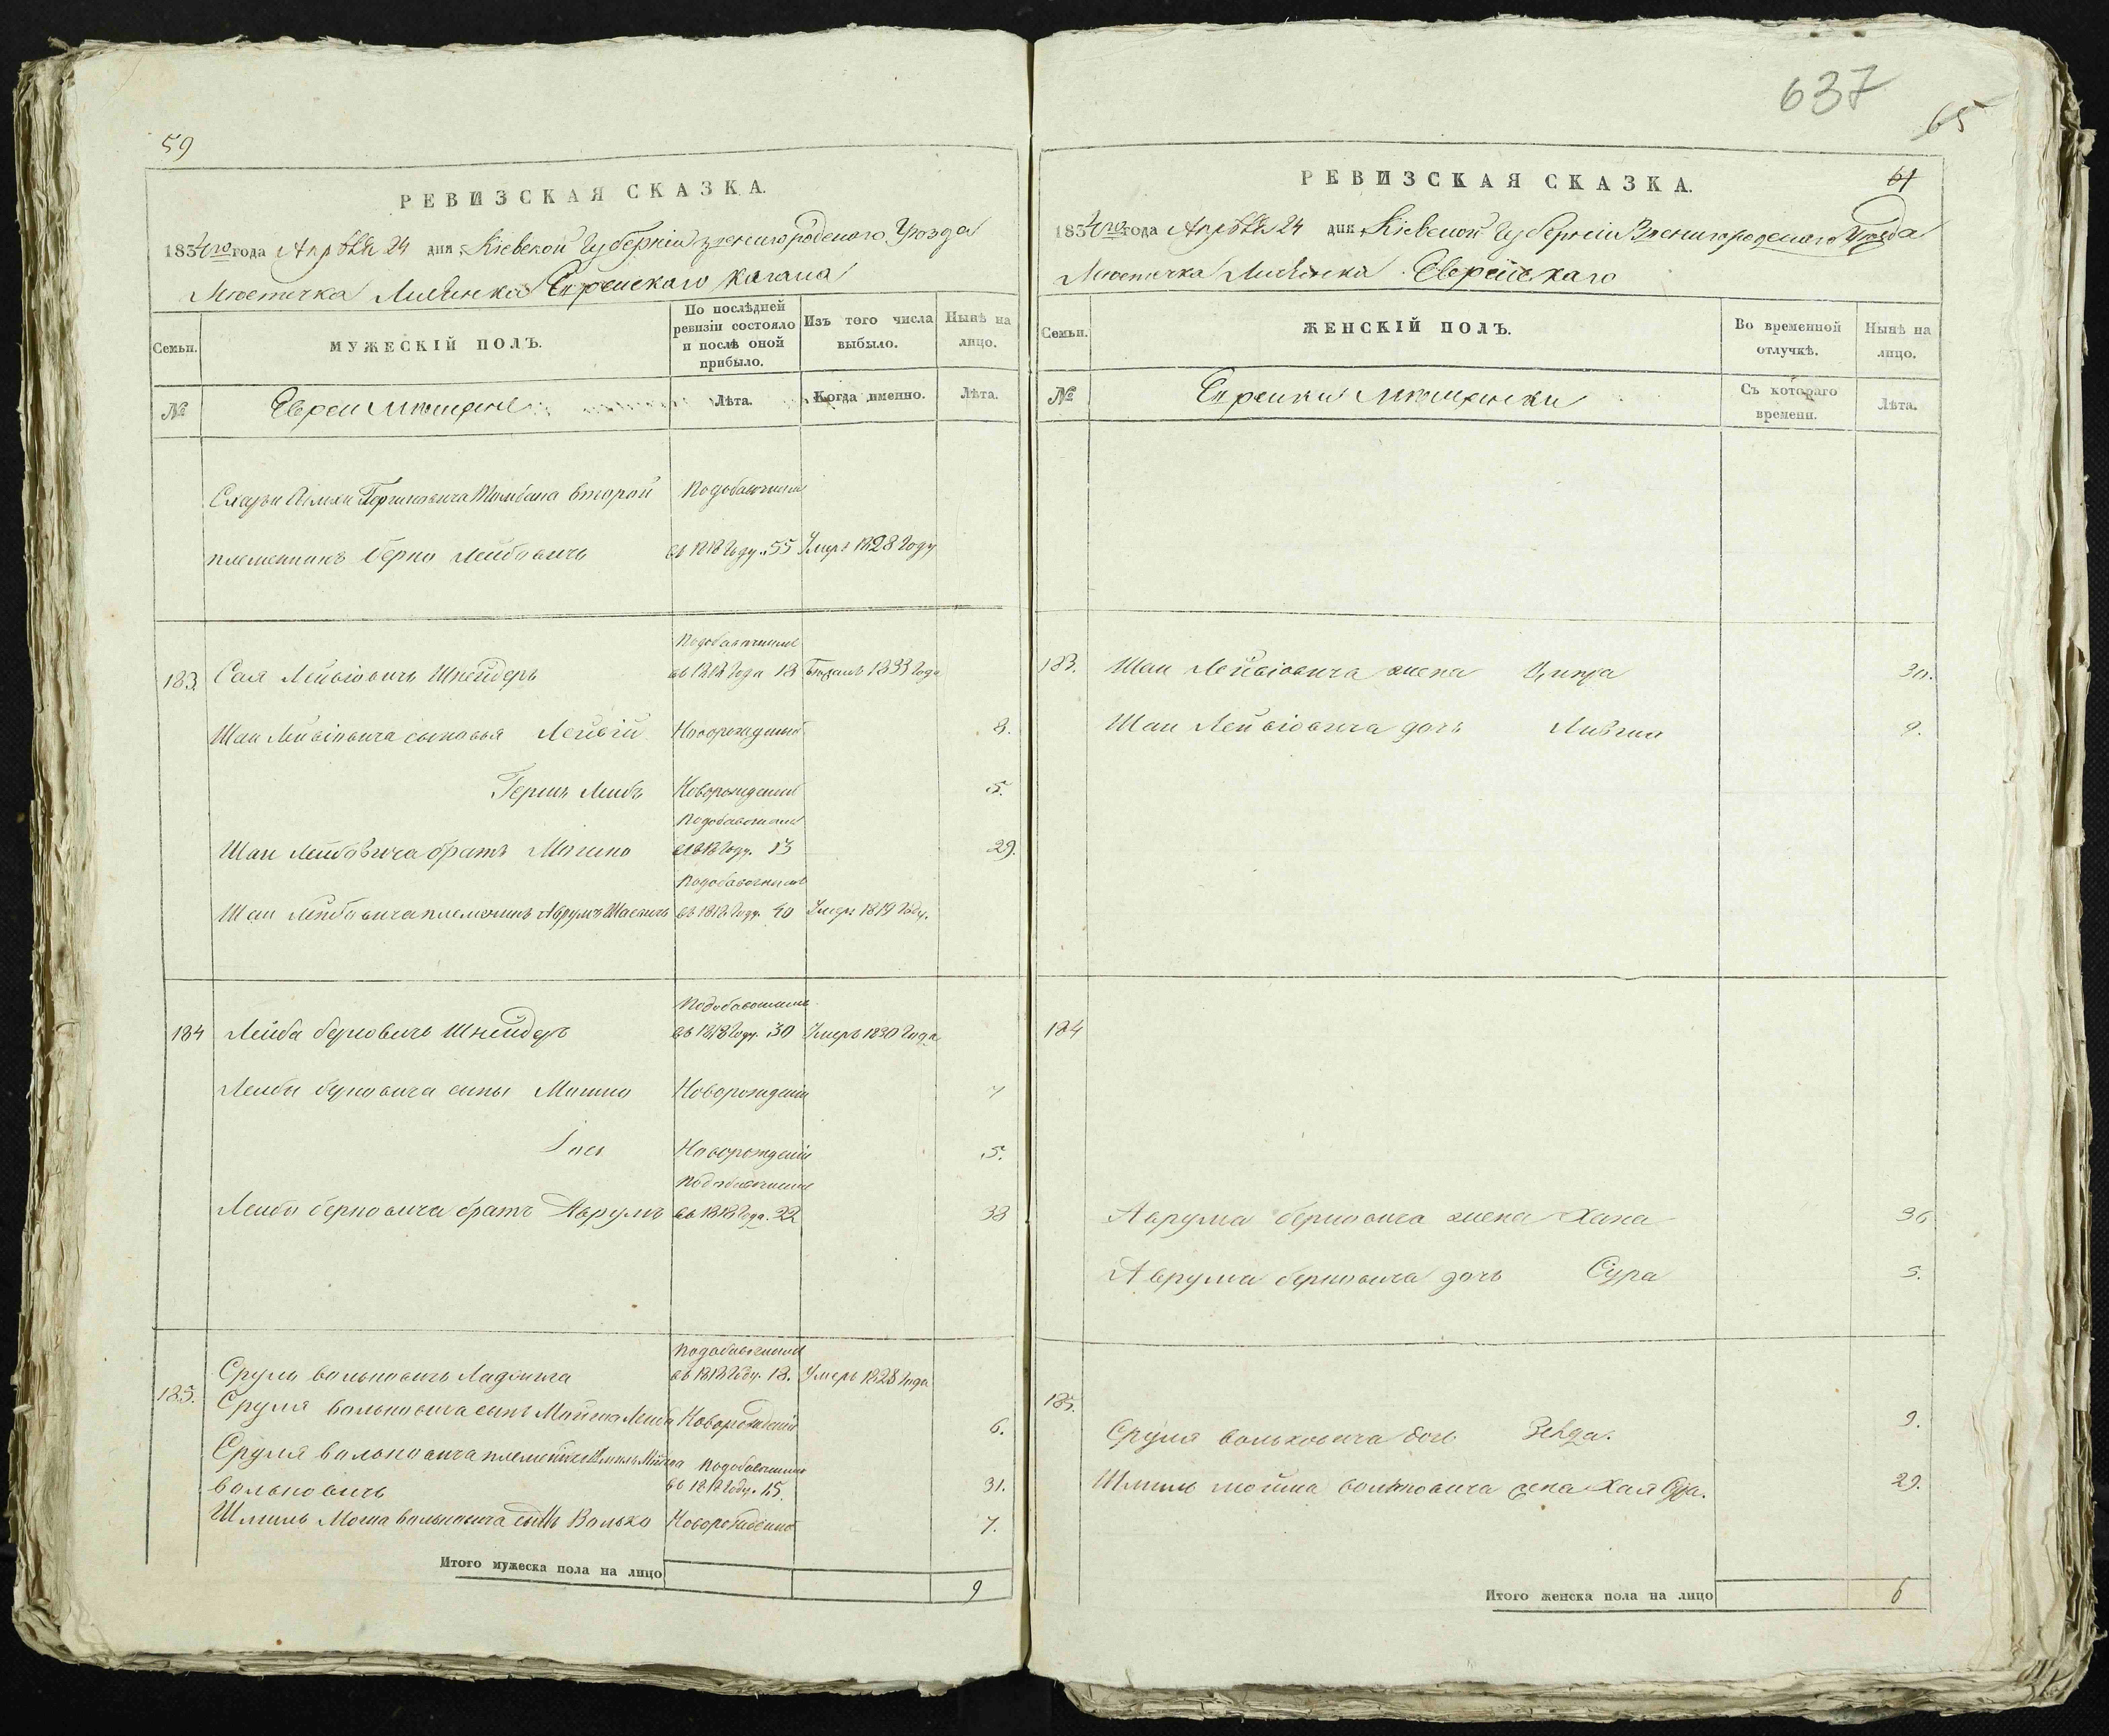 59
РЕВИЗСКАЯ СКАЗКА.
1834го года Апрѣля 24 дня Кіевской Губерніи Звенигородского Уѣзда
Местечка Лисянка Еврейскаго Кагала
Семьи.
МУЖЕСКІЙ ПОЛЪ.
По послѣдней ревизіи состояло и послѣ оной прибыло.
Изъ того числа выбыло.
Нынѣ на лицо.
№
Евреи мѣщане
Лѣта.
Когда именно.
Лѣта.
второй
племенникъ Берко Лейбовичъ
въ 1818 Году 55
Умеръ 1828 Году
183.
Сая Лейвіовичъ Шнейдеръ
въ 1818 Года 18
1833 Года
Шаи Лейвіовича сыновья Лейвій
Новорожденный
8.
Гершъ Лейбъ
Новорожденный
5.
Шаи Лейбовича братъ
13
29.
Шаи Лейбовича племенникъ Аврумъ Шаевичъ
въ 1818 Году 40
Умеръ 1819 Году.
184
Лейба Берковичъ Шнейдеръ
въ 1818 Году 30
Умеръ 1830 Года
Лейбы Берковича сыны Мошко
Новорожденный
7
Іось
Новорожденный
5.
Лейбы Берковича братъ Аврумъ
въ 1818 Года. 22
38
185.
Сруль Вольковичъ
въ 1818 Году. 18.
Умеръ 1828 Года
Сруля Вольковича сынъ Мойша Лейба
Новорожденный
6.
Сруля Вольковича племенникъ Шмиль Мойша
Вольковичъ
въ 1818 Году. 15.
31.
Шмиль Моша Вольковича сынъ Волько
Новорожденный
7.
Итого мужеска пола на лицо
9
637
65
61
РЕВИЗСКАЯ СКАЗКА.
1834го года Апрѣля 24 дня Кіевской Губерніи Звенигородскаго Уѣзда
Местечка Лисянка Еврейскаго
Семьи.
ЖЕНСКІЙ ПОЛЪ.
Во временной отлучкѣ.
Нынѣ на лицо.
№
Еврейки мѣщанки
Съ котораго времени.
Лѣта.
183.
Шаи Лейвіовича жена
30.
Шаи Лейвіовича дочь
9.
184
Аврума Берковича жена Хана
36
Аврума Берковича дочь Сура
5.
185.
Сруля Вольковича дочь Зелда.
9.
Шмиль Мойша Вольковича жена Хая Сура.
29.
Итого женска пола на лицо
6